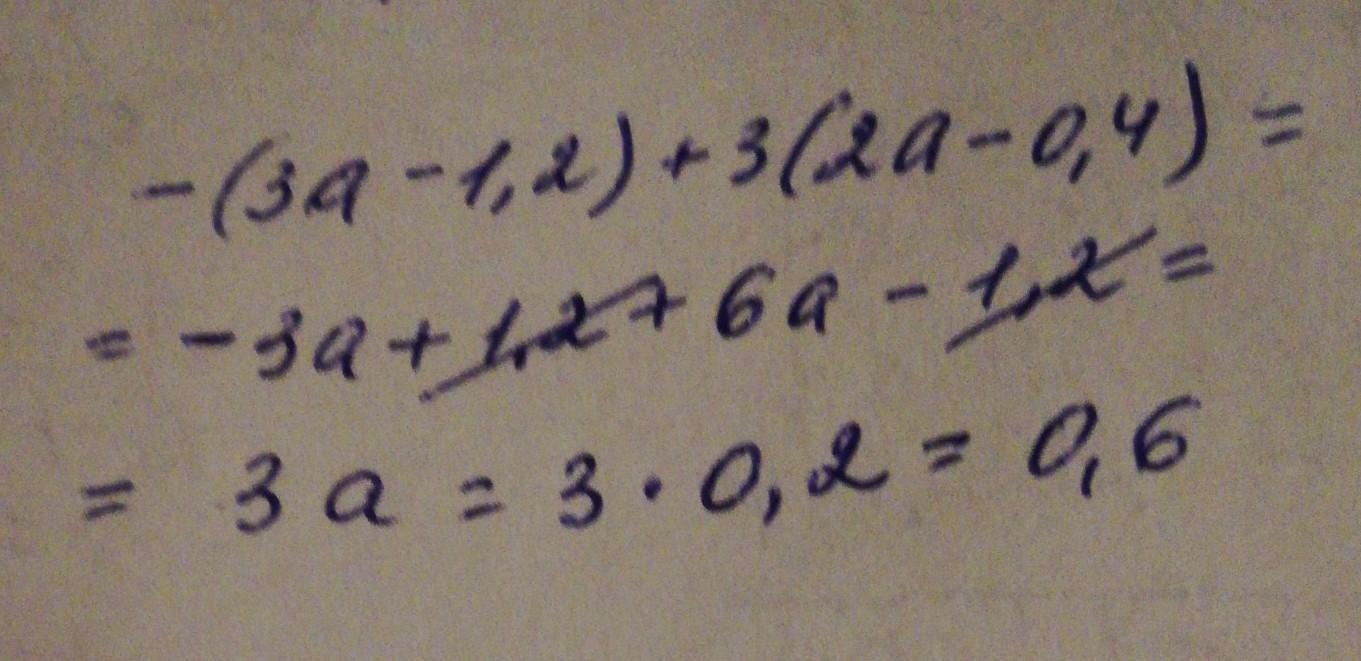 -(3a-1,2)+3(2a-0,4)=
=-3a+1,2+6a-1,2=
= 3a = 3·0,2 = 0,6